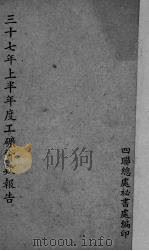 四聯總處秘書處編印
三十七年上半年度工礦報告